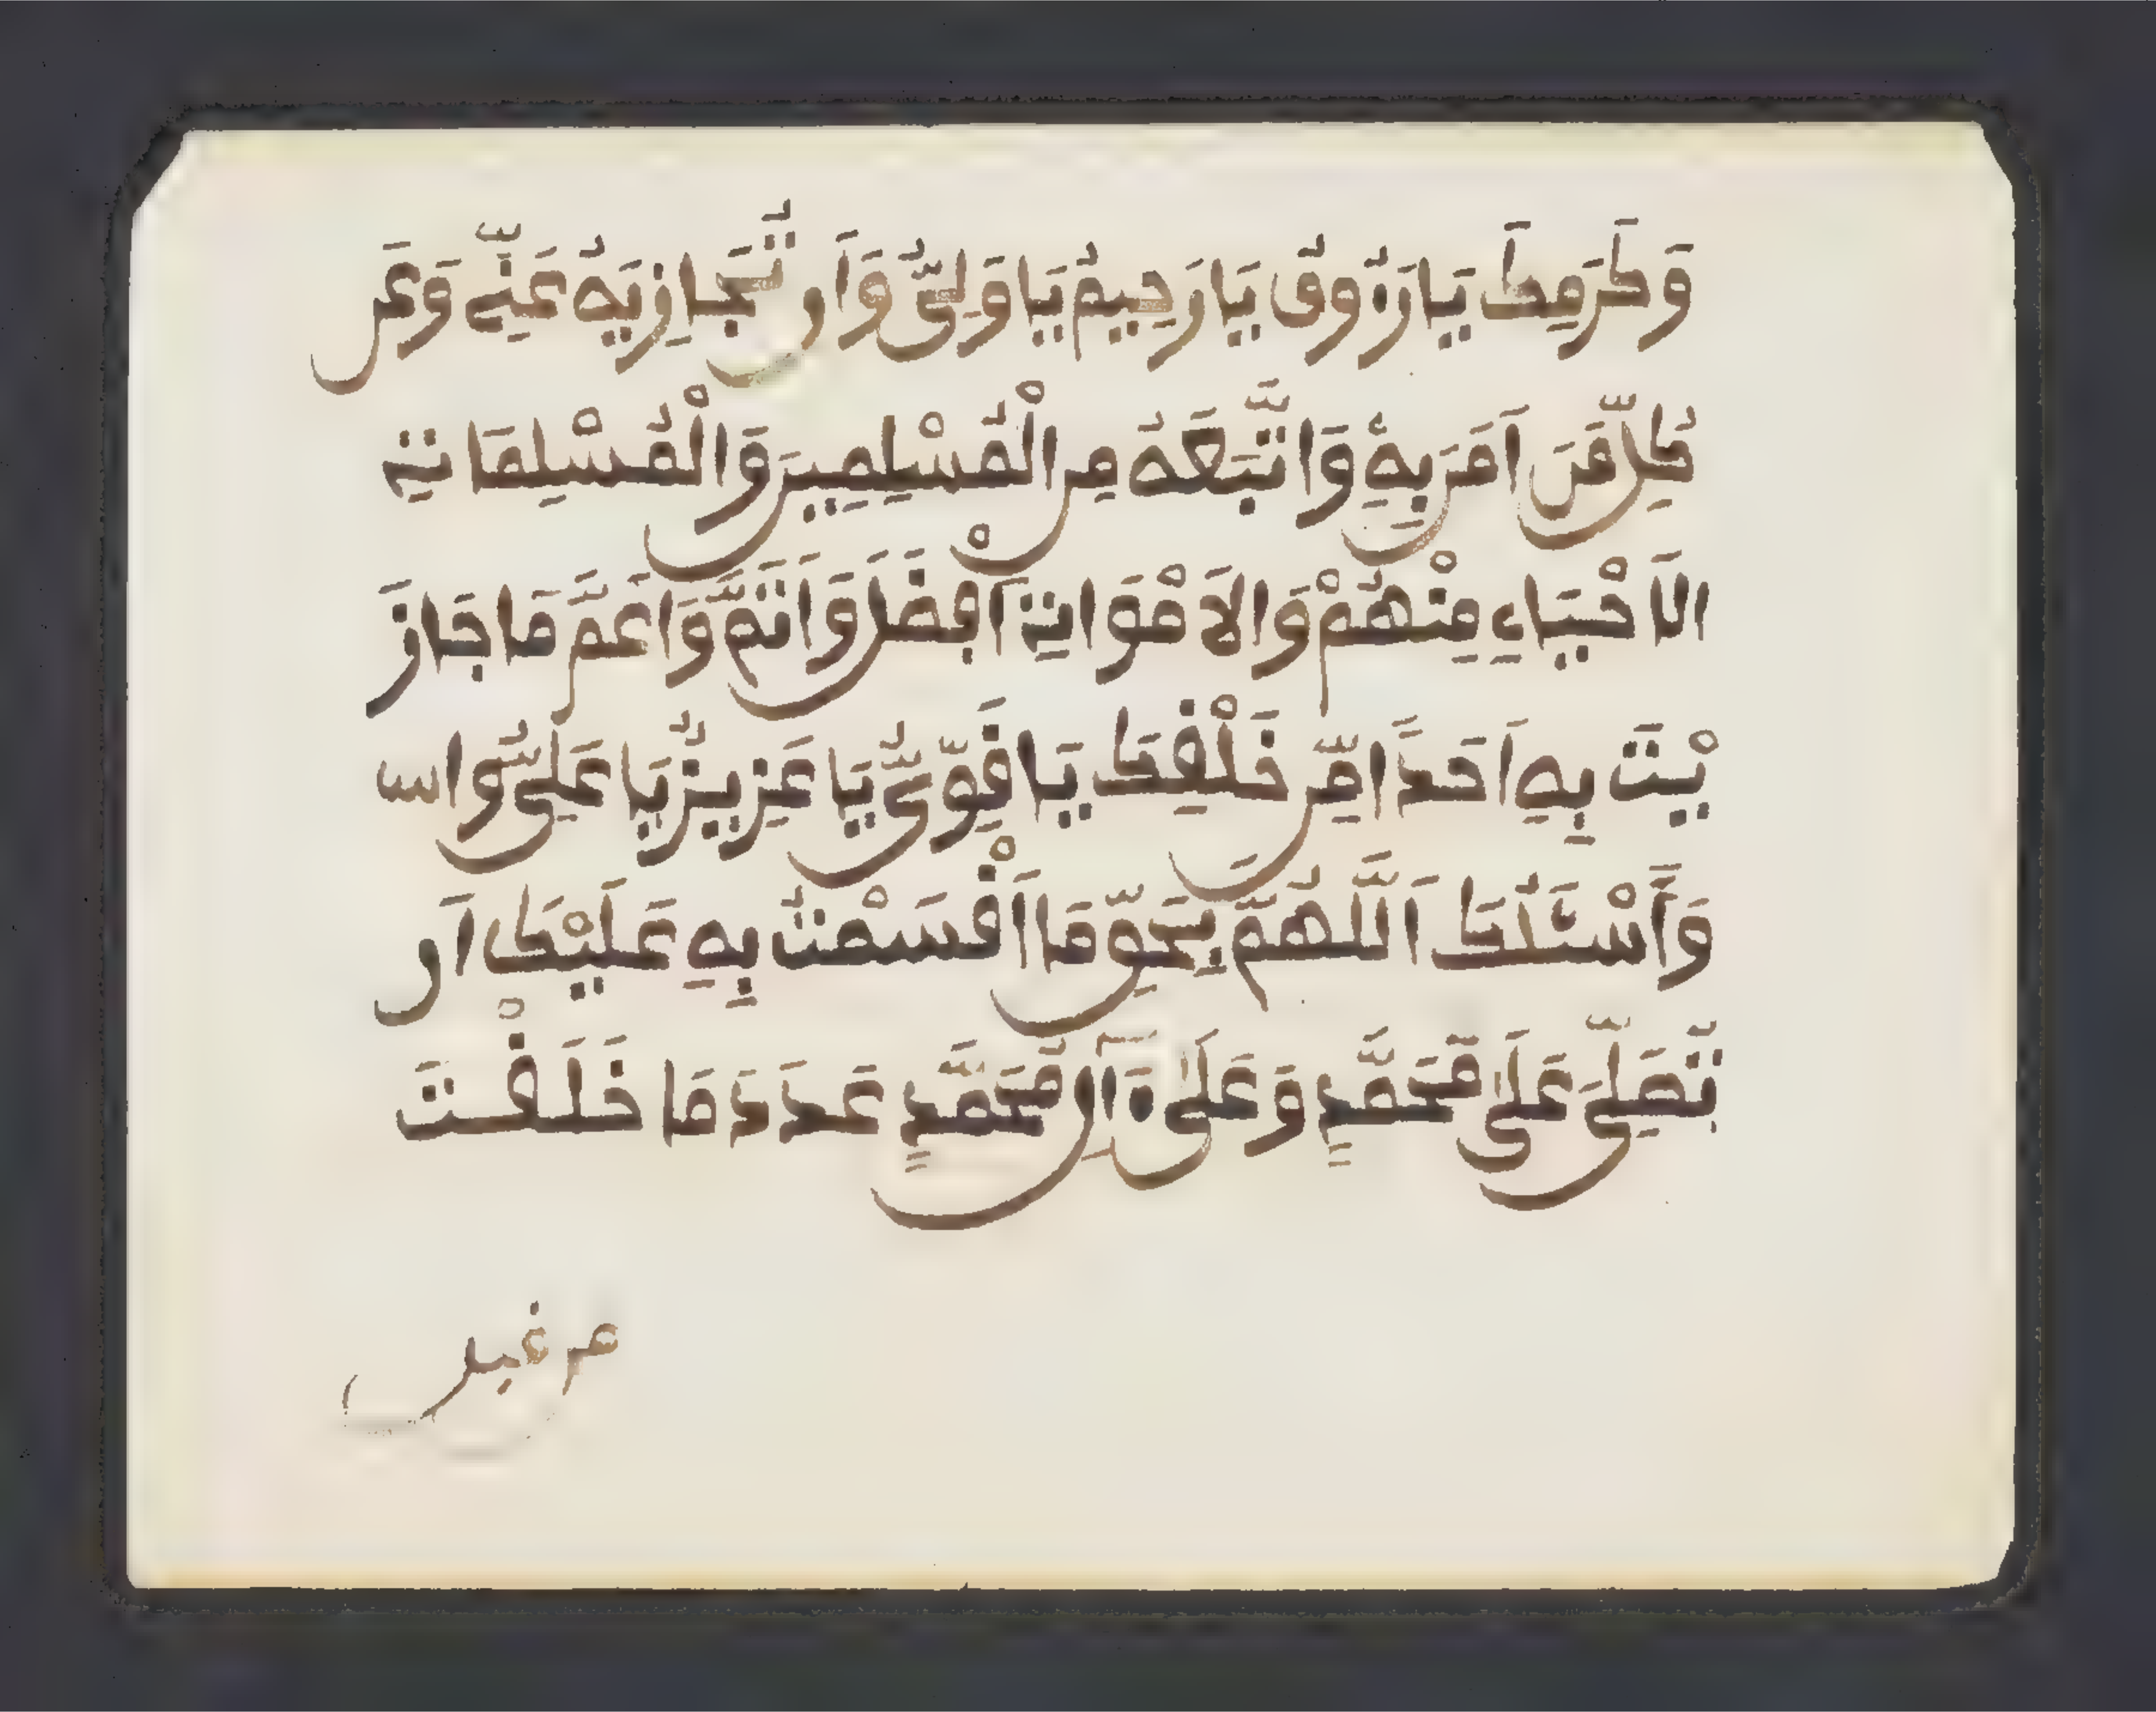 وَكَرَمِكَ يَا رَءُوفُ يَا رَحِيمُ يَا وَلِيُّ وَأَن تُجَازِيَهُ عَنِّے وَعَن
كُلِّ مَنَ اٰمَنَ بِهِ وَاتَّبَعَهُ مِنَ الْمُسْلِمِينَ وَالْمُسْلِمَاتِ
الَاحْيَاءِ مِنْهُمْ وَالَامْوَاتِ أَفْضَلَ وَأَتَمَّ وَأَعَمَّ مَا جَازَ
يْتَ بِهِ أَحَدًا مِّنْ خَلْقِكَ يَا قَوِيُّ يَا عَزِيزُ يَا عَلِيُّ وَاس
وَأَسْـَٔلُكَ اَللَّهُمَّ بِحَقِّ مَا أَقْسَمْتُ بِهِ عَلَيْكَ أَن
تُصَلِّيَ عَلَىٰ مُحَمَّدٍ وَعَلَىٰ ءَالِ مُحَمَّدٍ عَدَدَ مَا خَلَقْتَ